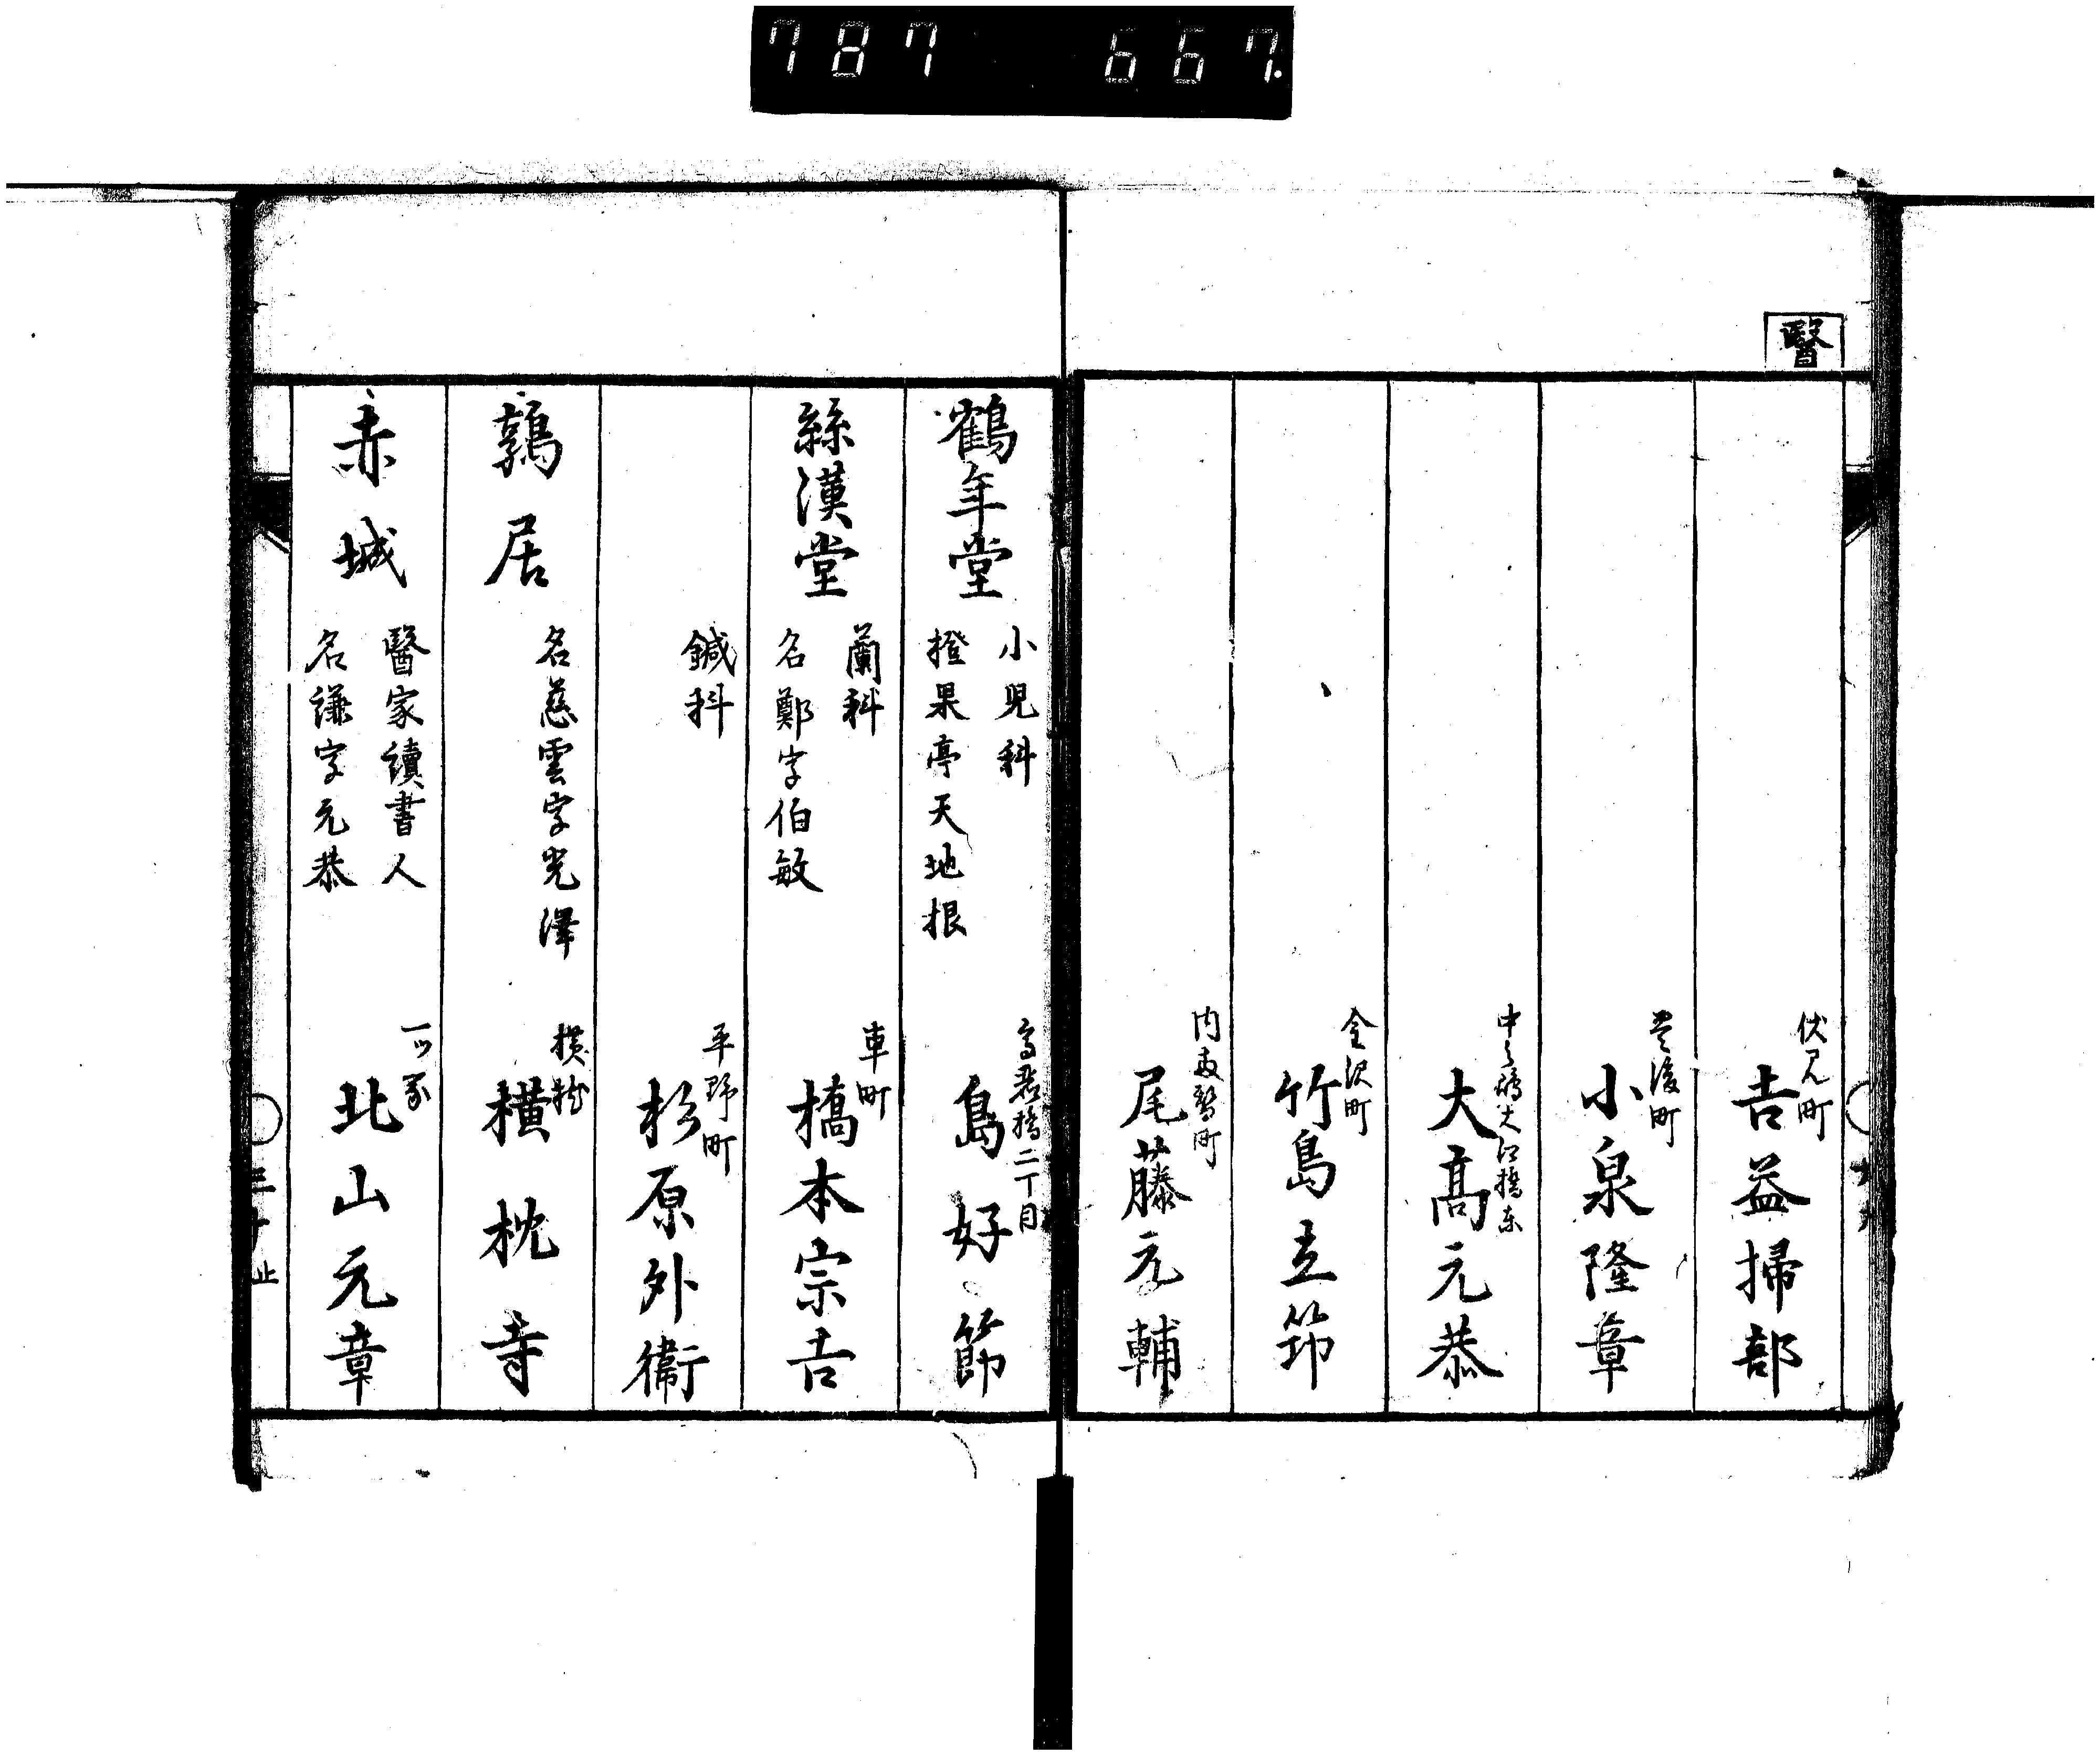 787 667.
醫
伏見町
吉益掃部
豊後町
小泉隆章
中之嶋大江橋東
大髙元恭
金沢町
竹島立節
内両替町
尾藤元輔
鶴年堂
小児科
橙果亭天地根
高麗橋二丁目
島好節
絲漢堂
蘭科
名鄭字伯敏
車町
橋本宗吉
鍼科
平野町
杉原外衞
鶉居
名慈雲字光澤
横堀
横枕寺
赤城
醫家讀書人
名謙字元恭
一ツ家
北山元章
三十止